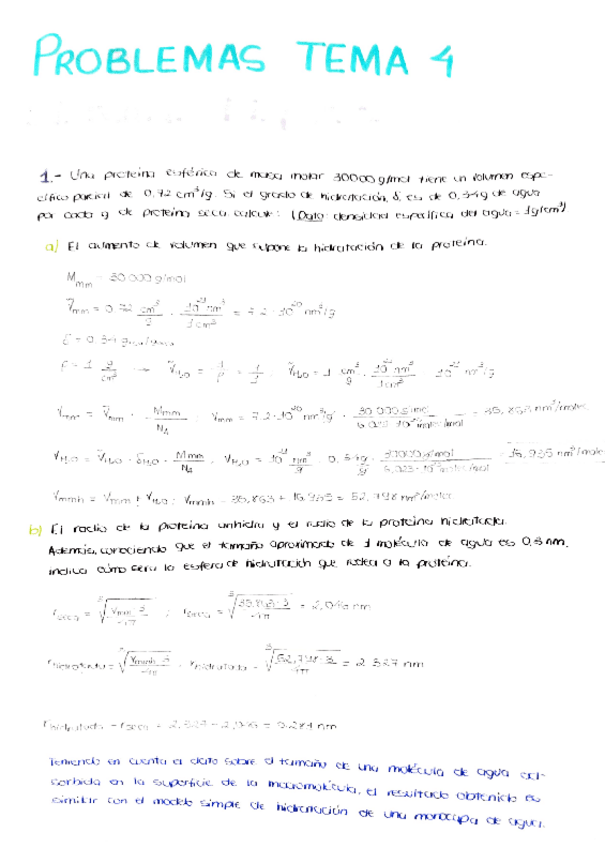 PROBLEMAS TEMA 4
1.- Una proteína esférica de masa molar 30000 g/mol tiene un volumen espe-
cífico parcial de 0,72 cm³/g. Si el grado de hidratación, δ, es de 0,34g de agua
por cada g de proteína seca calcular: (Dato: densidad específica del agua = 1g/cm³)
a) El aumento de volumen que supone la hidratación de la proteína.
Mmm = 30000 g/mol
V̄mm = 0,72 cm³/g · 10²¹ nm³/1cm³ = 7,2·10²⁰ nm³/g
= 0,34
= 1 g/cm³ → ṼH₂O = 1/ρ = 1/1 ; ṼH₂O = 1 cm³/g · 10²¹ nm³/1cm³ = 10²¹ nm³/g
= Ṽmm · Mmm/NA ; Vmm = 7,2·10²⁰ nm³/g · 30 000 g/mol / 6,023·10²³ molec/mol = 35,863 nm³/molec
VH₂O = ṼH₂O · δH₂O · Mmm/NA ; VH₂O = 10²¹ nm³/g · 0,34 g/g · 30000 g/mol / 6,023·10²³ molec/mol = 16,935 nm³/molec
Vmmh = Vmm + VH₂O ; Vmmh = 35,863 + 16,935 = 52,798 nm³/molec
b) El radio de la proteína anhidra y el radio de la proteína hidratada.
Además, conociendo que el tamaño aproximado de 1 molécula de agua es 0,3 nm,
indica cómo será la esfera de hidratación que rodea a la proteína.
rseca = ∛(Vmm·3/4π) ; rseca = ∛(35,863·3/4π) = 2,046 nm
rhidratada = ∛(Vmmh·3/4π) ; rhidratada = ∛(52,798·3/4π) = 2,327 nm
rhidratada - rseca = 2,327 - 2,046 = 0,281 nm
Teniendo en cuenta el dato sobre el tamaño de una molécula de agua ad-
sorbida en la superficie de la macromolécula, el resultado obtenido es
similar con el modelo simple de hidratación de una monocapa de agua.